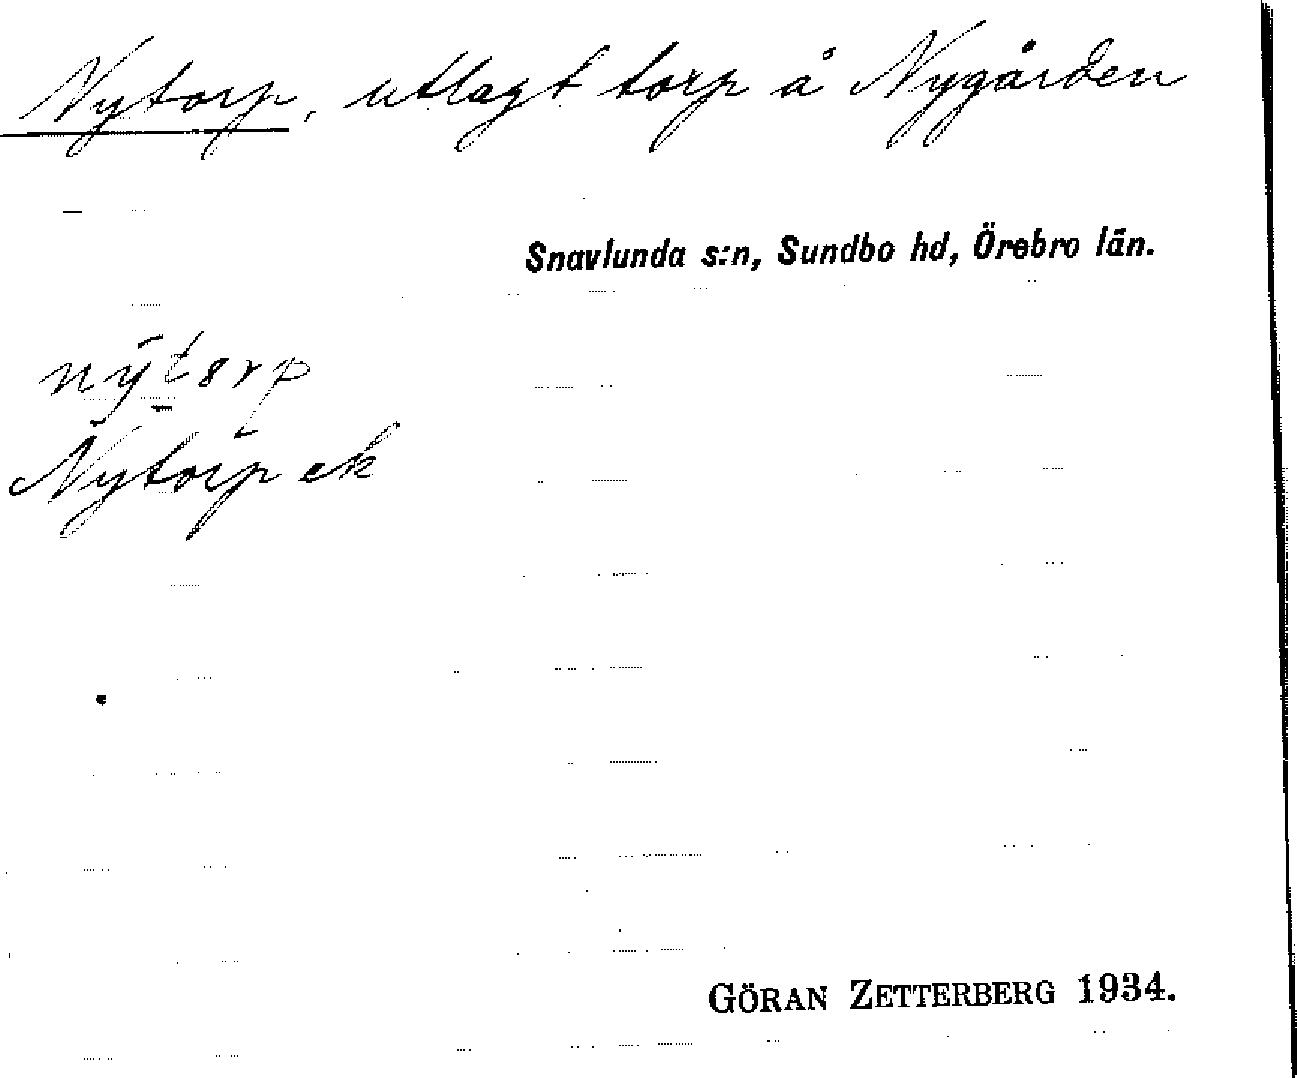 Nytorp, utlagt torp å Nygården
Snavlunda s:n, Sundbo hd, Örebro län.
Nytorp ek
GÖRAN ZETTERBERG 1934.